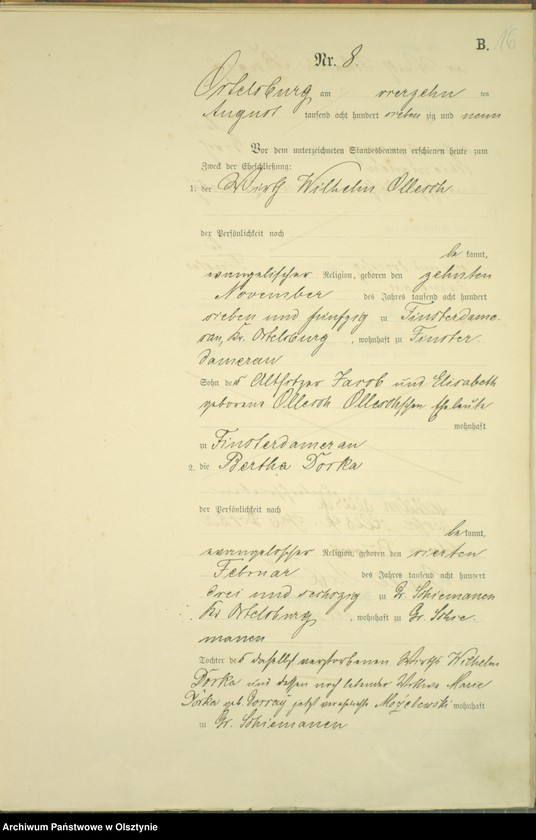 B. 16
Nr. 8.
Ortelsburg am vierzehn ten
August tausend acht hundert sieben zig und neun
Vor dem unterzeichneten Standesbeamten erschienen heute zum
Zweck der Eheschließung:
1. der Wirth Wilhelm Ollesch
der Persönlichkeit nach
be kannt,
evangelischer Religion, geboren den zehnten
November des Jahres tausend acht hundert
sieben und fünfzig zu Finsterdame-
rau, Kr. Ortelsburg, wohnhaft zu Finster-
damerau
Sohn des Altsitzer Jacob und Elisabeth
geborene Ollesch Olleschschen Eheleute
wohnhaft
zu Finsterdamerau
2. die Bertha Dorka
der Persönlichkeit nach
be kannt,
evangelischer Religion, geboren den vierten
Februar des Jahres tausend acht hundert
drei und sechszig zu Gr. Schiemanen
Kr. Ortelsburg, wohnhaft zu Gr. Schie-
manen
Tochter des daselbst verstorbenen Wirths Wilhelm
Dorka und dessen noch lebender Wittwe Marie
Dorka geb. jetzt verehelichte wohnhaft
zu Gr. Schiemanen
Archiwum Państwowe w Olsztynie